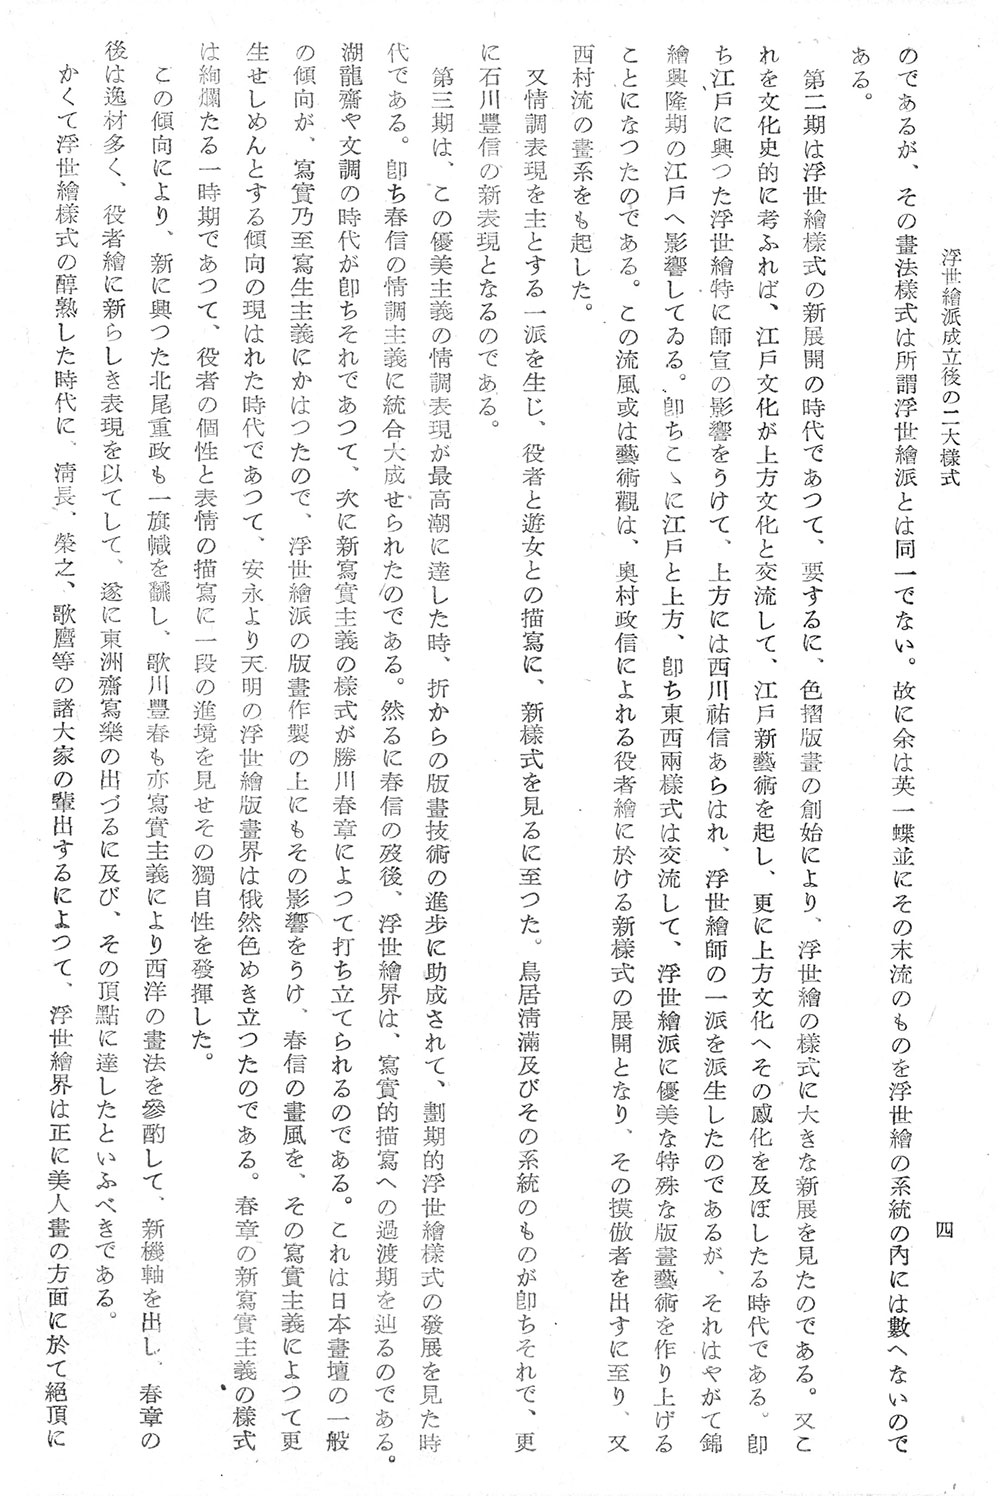 浮世繪派成立後の二大樣式
四
のであるが、その畫法樣式は所謂浮世繪派とは同一でない。故に余は英一蝶並にその末流のものを浮世繪の系統の內には數へないので
ある。
第二期は浮世繪樣式の新展開の時代であつて、要するに、色摺版畫の創始により、浮世繪の樣式に大きな新展を見たのである。又こ
れを文化史的に考ふれば、江戶文化が上方文化と交流して、江戶新藝術を起し、更に上方文化へその感化を及ぼしたる時代である。卽
ち江戶に興つた浮世繪特に師宣の影響をうけて、上方には西川祐信あらはれ、浮世繪師の一派を派生したのであるが、それはやがて錦
繪興隆期の江戶へ影響してゐる。卽ちこゝに江戶と上方、卽ち東西兩樣式は交流して、浮世繪派に優美な特殊な版畫藝術を作り上げる
ことになつたのである。この流風或は藝術觀は、奧村政信によれる役者繪に於ける新樣式の展開となり、その摸倣者を出すに至り、又
西村流の畫系をも起した。
又情調表現を主とする一派を生じ、役者と遊女との描寫に、新樣式を見るに至つた。鳥居淸滿及びその系統のものが卽ちそれで、更
に石川豐信の新表現となるのである。
第三期は、この優美主義の情調表現が最高潮に達した時、折からの版畫技術の進步に助成されて、劃期的浮世繪樣式の發展を見た時
代である。卽ち春信の情調主義に統合大成せられたのである。然るに春信の歿後、浮世繪界は、寫實的描寫への過渡期を辿るのである。
湖龍齋や文調の時代が卽ちそれであつて、次に新寫實主義の樣式が勝川春章によつて打ち立てられるのである。これは日本畫壇の一般
の傾向が、寫實乃至寫生主義にかはつたので、浮世繪派の版畫作製の上にもその影響をうけ、春信の畫風を、その寫實主義によつて更
生せしめんとする傾向の現はれた時代であつて、安永より天明の浮世繪版畫界は俄然色めき立つたのである。春章の新寫實主義の樣式
は絢爛たる一時期であつて、役者の個性と表情の描寫に一段の進境を見せその獨自性を發揮した。
この傾向により、新に興つた北尾重政も一旗幟を飜し、歌川豐春も亦寫實主義により西洋の畫法を參酌して、新機軸を出し、春章の
後は逸材多く、役者繪に新らしき表現を以てして、遂に東洲齋寫樂の出づるに及び、その頂點に達したといふべきである。
かくて浮世繪樣式の醇熟した時代に、淸長、榮之、歌麿等の諸大家の輩出するによつて、浮世繪界は正に美人畫の方面に於て絕頂に